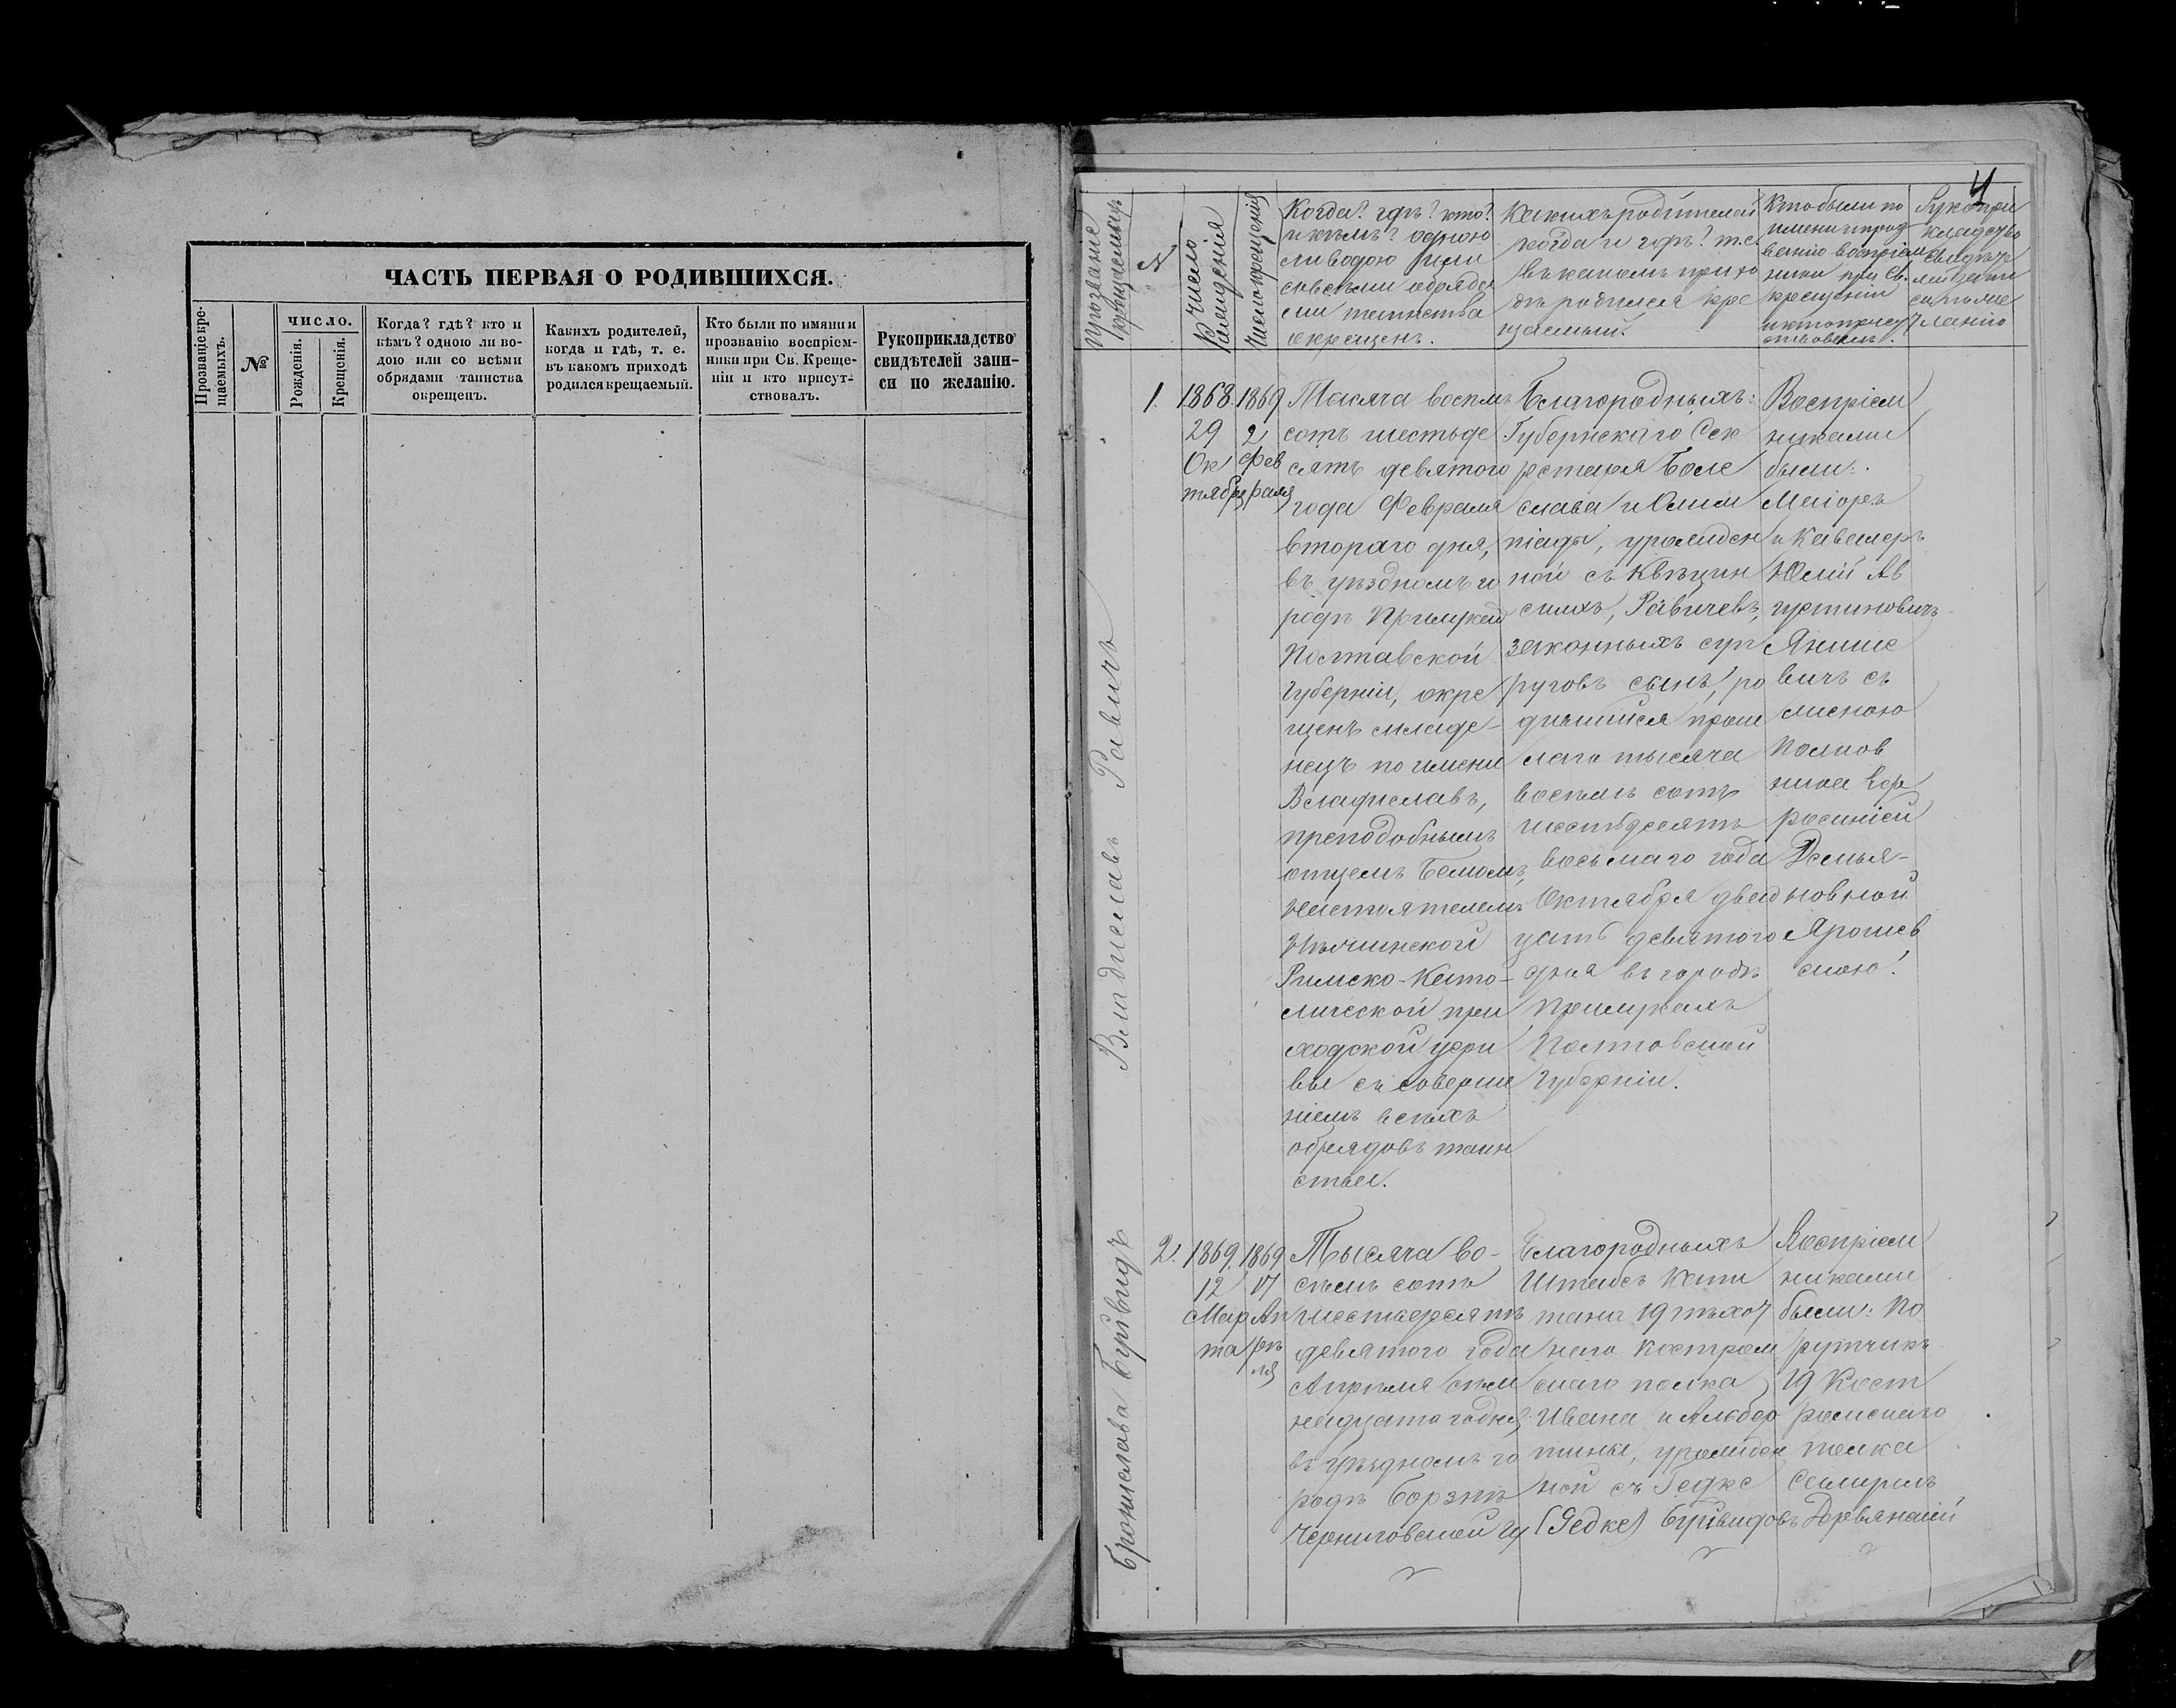 ЧАСТЬ ПЕРВАЯ О РОДИВШИХСЯ.
Прозваніе кре-
щаемыхъ.
№
ЧИСЛО.
Рожденія.
Крещенія.
Когда? гдѣ? кто и
кѣмъ? одною ли во-
дою или со всѣми
обрядами таинства
окрещенъ.
Какихъ родителей,
когда и гдѣ, т. е.
въ какомъ приходѣ
родился крещаемый.
Кто были по имяни и
прозванію воспріем-
ники при Св. Креще-
ніи и кто присут-
ствовалъ.
Рукоприкладство
свидѣтелей запи-
си по желанію.
4
Прозваніе
крещаемыхъ
N
Число
Рожденія
Число крещенія
Когда? гдѣ? кто?
и кѣмъ? одною
ли водою или
со всѣми обряда
ми таинства
окрещенъ.
Какихъ родителей
когда и гдѣ? т.е.
въ какомъ прихо
дѣ родился кре
щаемый.
Кто были по
имени и проз
ванію воспріем
ники при Св.
крещеніи
и кто присут
ствовалъ.
Рукопри
кладство
свидѣте
лей записи
по же
ланію
Владиславъ Равичъ
1.
1868
29
Ок
тября
1869
2
Фев
раля
Тысяча восемь
сотъ шестьде
сятъ девятого
года Февраля
втораго дня,
въ уѣздномъ го
родѣ Прилукахъ
Полтавской
Губерніи, окре
щенъ младе-
нецъ по имени
Владиславъ,
преподобнымъ
отцемъ
Настоятелемъ
Нѣжинской
Римско-Като-
лической при
ходской церк
вы съ соверше
ніемъ всѣхъ
обрядовъ таин
ства.
Благородныхъ:
Губернскаго Сек
ретаря Боле
слава и Олим
піады, урожден
ной съ Квѣцин
скихъ, Равичевъ,
законныхъ суп
руговъ сынъ, ро
дившійся прош
лаго тысяча
восемь сотъ
шестьдесятъ
восьмаго года
Октября двад
цать девятого
дня въ городѣ
Прилукахъ
Полтавской
Губерніи.
Воспріем
никами
были:
Маіоръ
и Кавалеръ
Юлій Ав
густиновичъ
Янише
вичъ съ
женою
Полков
ника Еф
росиніей
Демья-
новной
Ярошев
скою.
Бронислава Буйвидъ
2.
1869.
12
Мар
та
1869
17
Ап
рѣ
ля
Тысяча во-
семь сотъ
шестьдесятъ
девятого года
Апрѣля сем
надцатаго дня,
въ уѣздномъ го
родѣ Борзнѣ
Черниговской Гу
Благородныхъ
Штабсъ Капи
тана 19 пѣхот
наго Костром
скаго полка
Ивана и Альбер
тины, урожден
ной съ Гедке
(Gedke) Буйвидовъ
Воспріем
никами
были: По
ручикъ
19 Кост
ромскаго
полка
Деревянскій